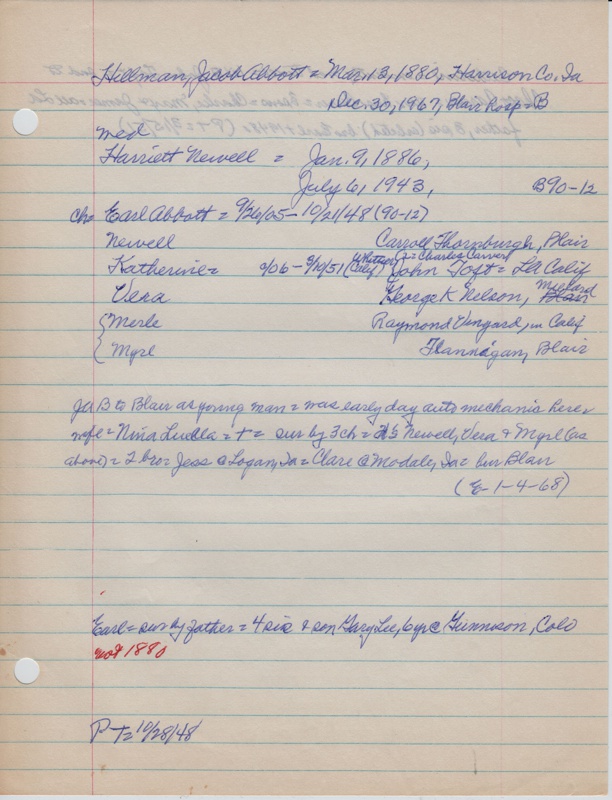 Hillman, Jacob Abbott = Mar. 13, 1880, Harrison Co. Ia
Dec. 30, 1967, Blair Hosp = B
med
Harriett Newell = Jan. 9, 1886,
July 6, 1943, B90-12
ch= Earl Abbott = 9/26/05 - 10/21/48 (90-12)
Newell Carroll Thornburgh, Blair
Katherine = 2/06 - 9/10/51 (Whittier Calif) (2 = Charles Carver) John Yost = LA Calif
Vera George K Nelson, Millard Blair
{ Merle Raymond Vingard, in Calif
{ Myrl Flannigan, Blair
JA B to Blair as young man = was early day auto mechanic here
wife = Nina Luella = + = sur by 3 ch = Newell, Vera & Myrl (as
above) = 2 bro = Jess @ Logan, Ia = Clare @ Modale, Ia = bur Blair
(E 1-4-68)
Earl = sur by father = 4 sis & son Gary Lee, 6 yr @ Gunnison, Colo
not 1880
P-T= 10/28/48